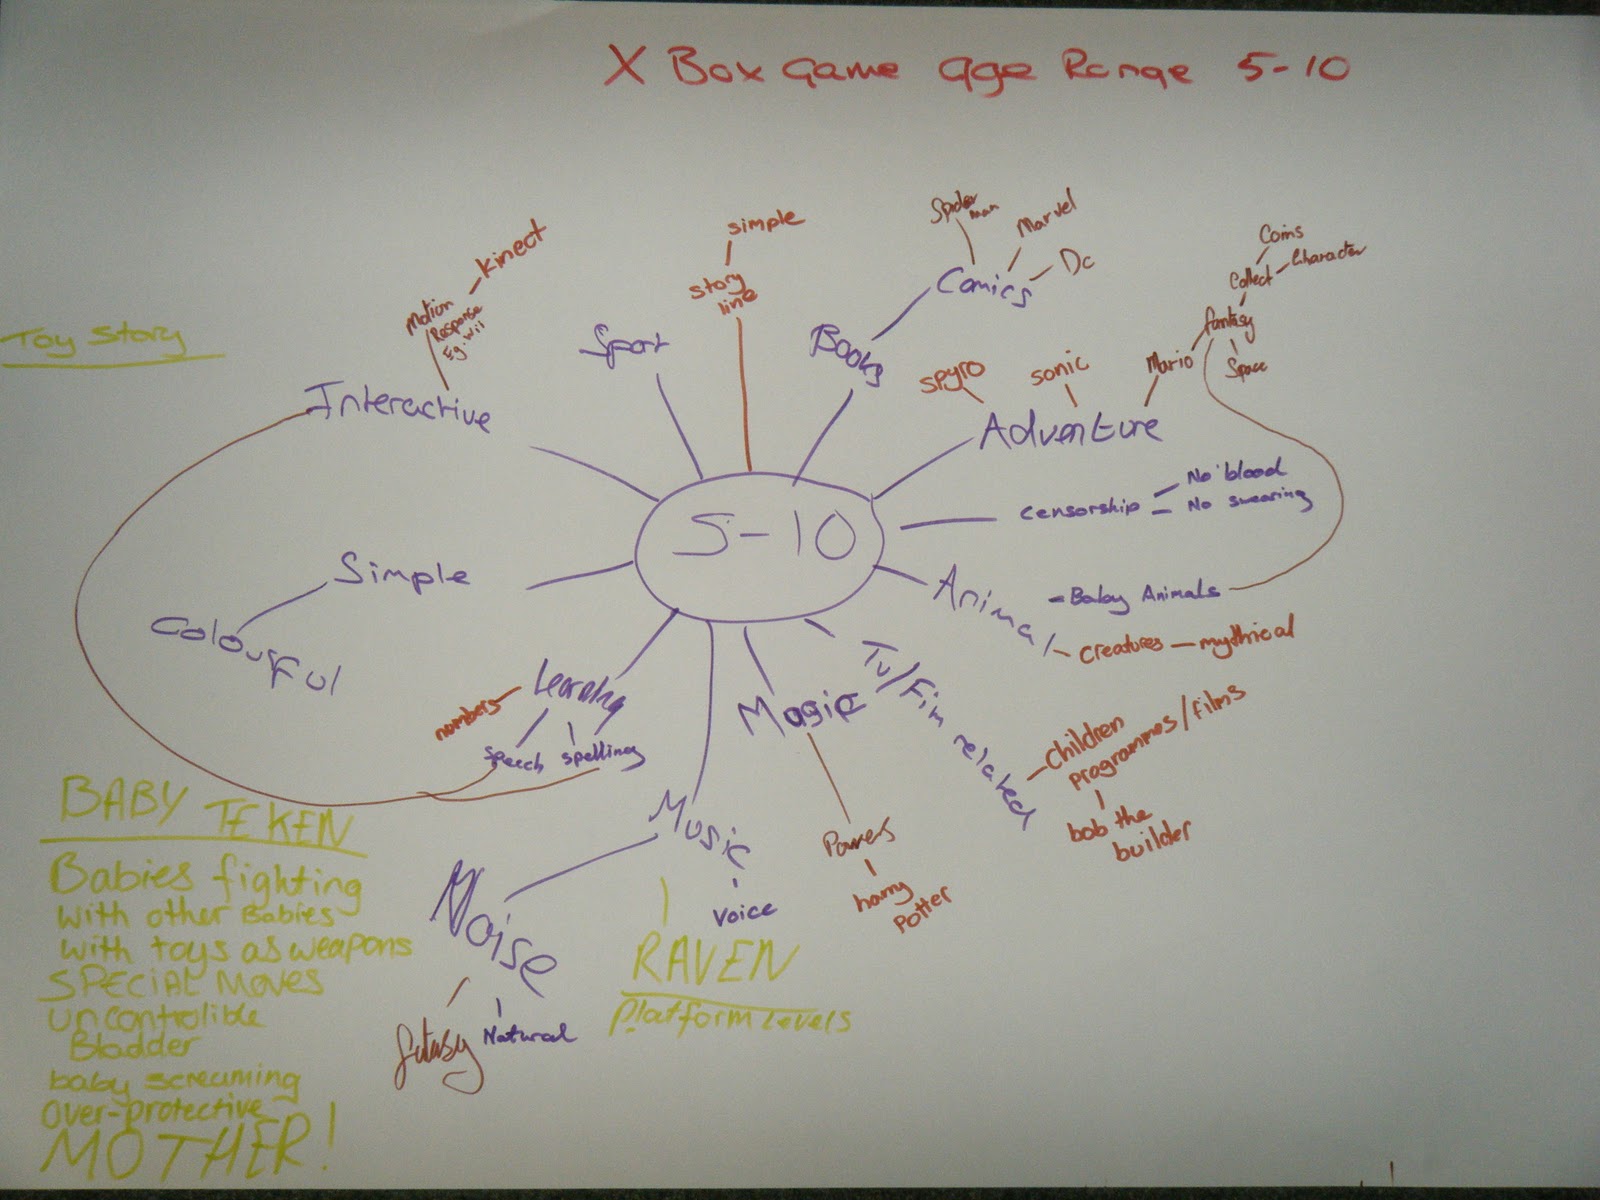 X Box Game age Range 5-10
Toy Story
Interactive
Motion
Response
Eg. Wii
Kinect
Sport
simple
story
line
Books
Comics
Spider
man
Marvel
Dc
Adventure
spyro
sonic
Mario
fantasy
Space
Collect
Coins
Character
5-10
censorship
No blood
No swearing
Animal
Baby Animals
creatures
mythical
Tv/Fim related
Children
programmes/films
bob the
builder
Magic
Powers
harry
Potter
Music
voice
Noise
Natural
Learning
numbers
Speech
spelling
Simple
Colourful
BABY TEKEN
Babies fighting
with other Babies
with toys as weapons
SPECIAL MOVES
uncontrolible
Bladder
baby screaming
over-protective
MOTHER!
RAVEN
Platform Levels